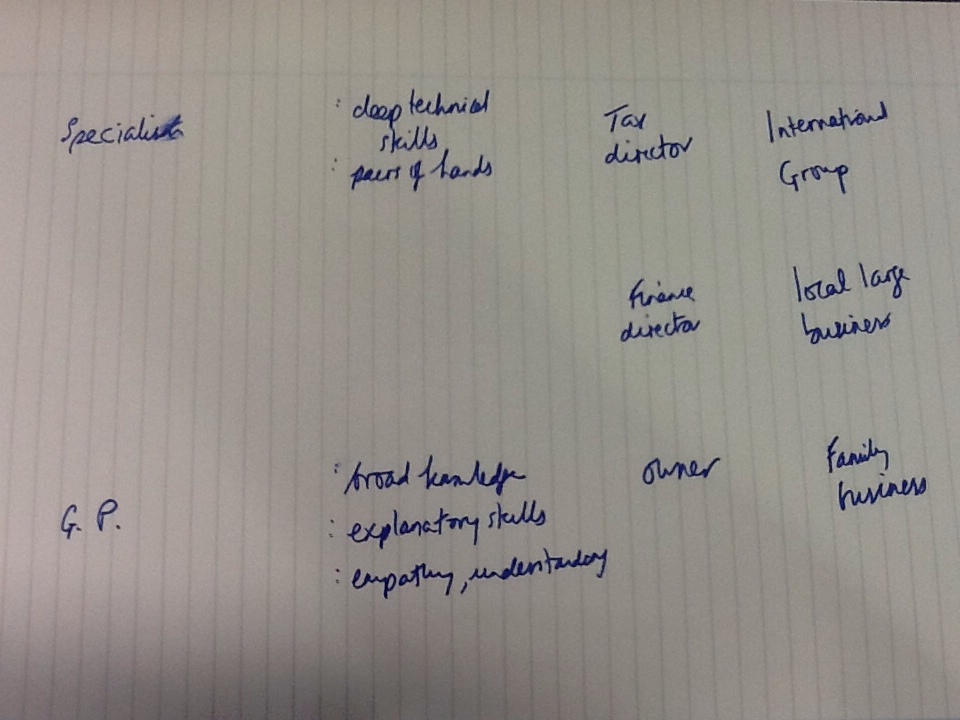 Specialist
: deep technical
skills
: pairs of hands
Tax
director
International
Group
Finance
director
local large
business
G. P.
: broad knowledge
: explanatory skills
: empathy, understanding
owner
Family
business